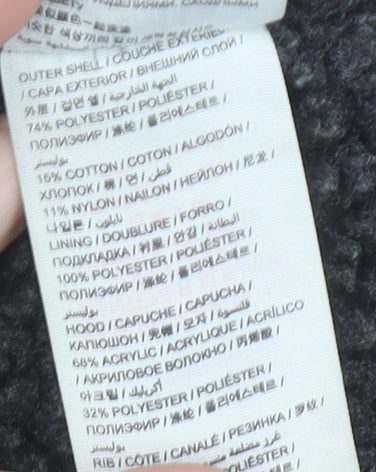 OUTER SHELL / COUCHE EXTÉRIEURE
/ CAPA EXTERIOR / ВНЕШНИЙ СЛОЙ /
الجهة الخارجية /
外层 / 겉면 옆 /
74% POLYESTER / POLIÉSTER /
ПОЛИЭФИР / 涤纶 / 폴리에스테르 /
بوليستر
15% COTTON / COTON / ALGODÓN /
ХЛОПОК / 棉 / 면 / قطن /
11% NYLON / NAILON / НЕЙЛОН / 尼龙 /
나일론 / نايلون
LINING / DOUBLURE / FORRO /
ПОДКЛАДКА / 衬里 / 안감 / البطانة /
100% POLYESTER / POLIÉSTER /
ПОЛИЭФИР / 涤纶 / 폴리에스테르 /
بوليستر
HOOD / CAPUCHE / CAPUCHA /
КАПЮШОН / 兜帽 / 모자 / قلنسوة /
68% ACRYLIC / ACRYLIQUE / ACRÍLICO
/ АКРИЛОВОЕ ВОЛОКНО / 丙烯酸 /
아크릴 / أكريليك /
32% POLYESTER / POLIÉSTER /
ПОЛИЭФИР / 涤纶 / 폴리에스테르 /
بوليستر
RIB / CÔTE / CANALÉ / РЕЗИНКА / 罗纹 /
POLIÉSTER /